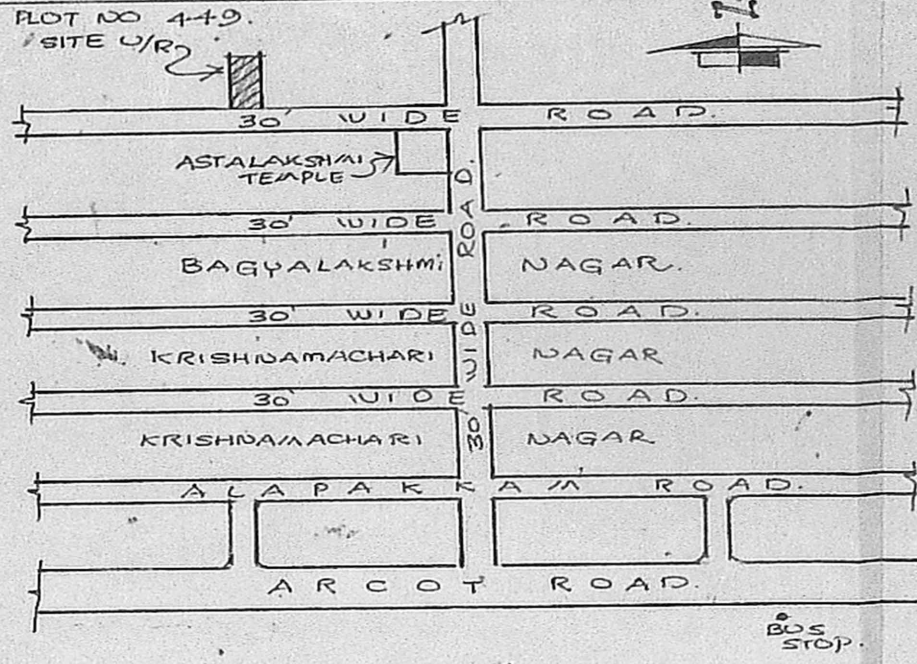 PLOT NO 449.
SITE U/R
N
30' WIDE ROAD.
ASTALAKSHMI
TEMPLE
30' WIDE ROAD.
30' WIDE ROAD.
BAGYALAKSHMI NAGAR.
30' WIDE ROAD.
KRISHNAMACHARI NAGAR
30' WIDE ROAD.
KRISHNAMACHARI NAGAR
ALAPAKKAM ROAD.
ARCOT ROAD.
BUS
STOP.